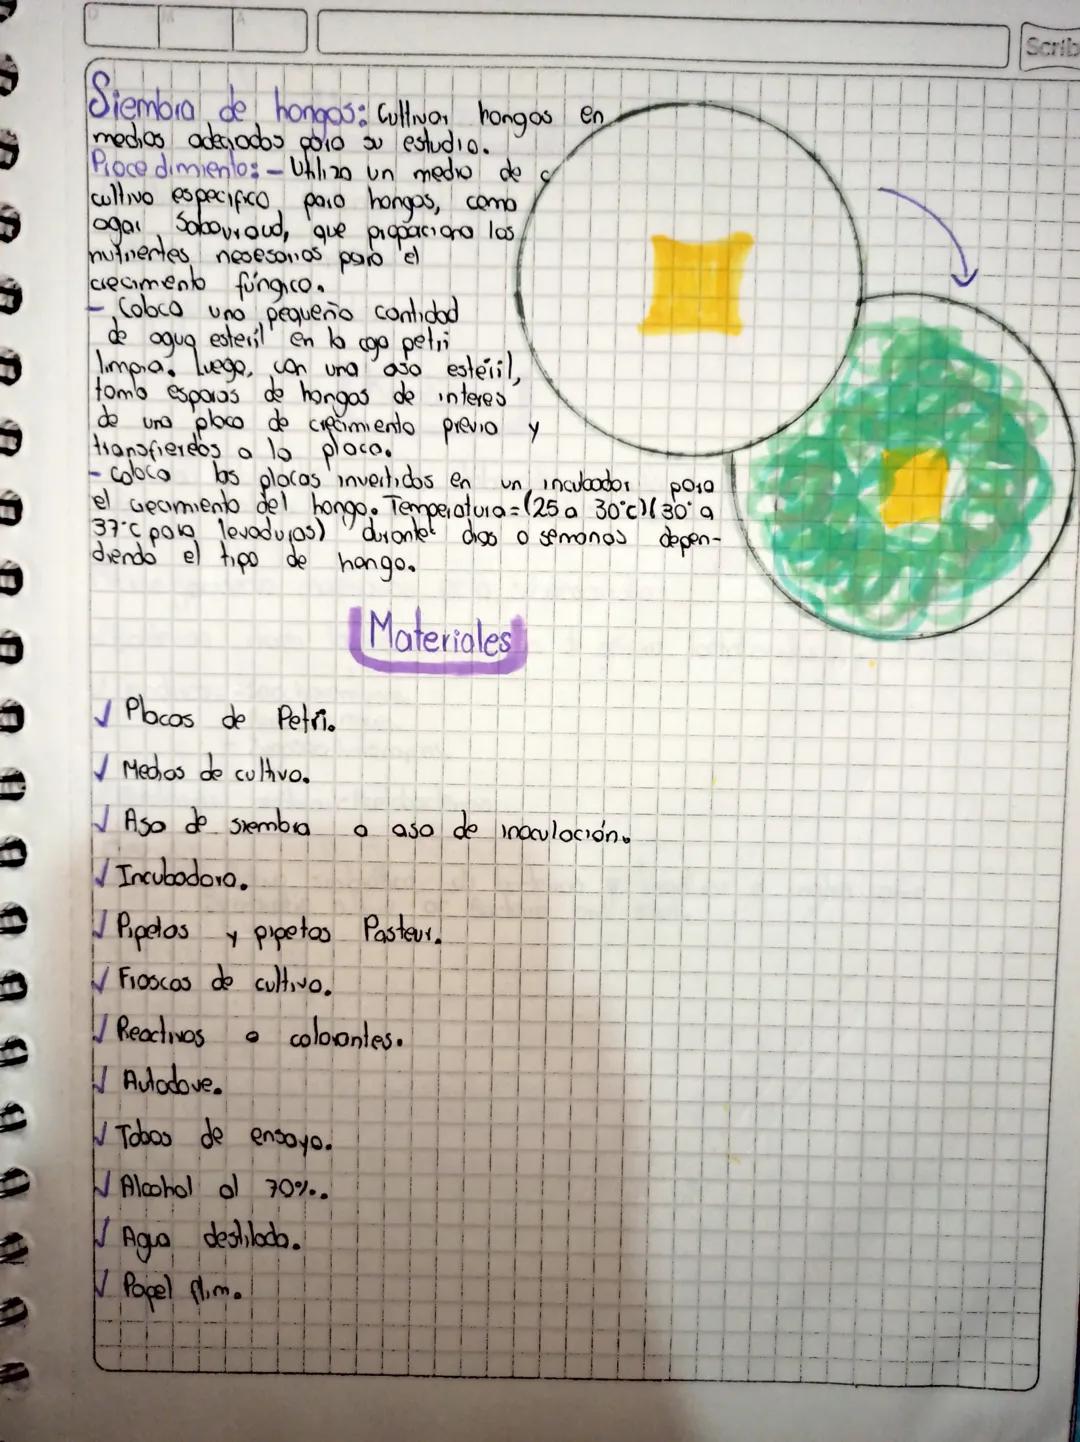 D M A
Scrib
Siembra de hongos: Cultivar hongos en
medios adecuados para su estudio.
Procedimiento: - Utiliza un medio de
cultivo especifico para hongos, como
agar Sabouraud, que propaciona los
nutrientes nesesarios para el
crecimiento fúngico.
- Coloca una pequeña cantidad
de agua esteril en la caja petri
limpia. Luego, con una asa estéril,
toma esporas de hongos de interes
de una placa de crecimiento previo y
transfierelas a la placa.
- Coloca las placas invertidas en un incubador para
el crecimiento del hongo. Temperatura=(25 a 30°c)(30° a
37°C para levaduras) durante dias o semanas depen-
diendo el tipo de hongo.
Materiales
√ Placas de Petri.
√ Medios de cultivo.
√ Asa de siembra o asa de inoculación.
√ Incubadora.
√ Pipetas y pipetas Pasteur.
√ Frascos de cultivo.
√ Reactivos o colorantes.
√ Autoclave.
√ Tobos de ensayo.
√ Alcohol al 70%.
√ Agua destilada.
√ Papel film.